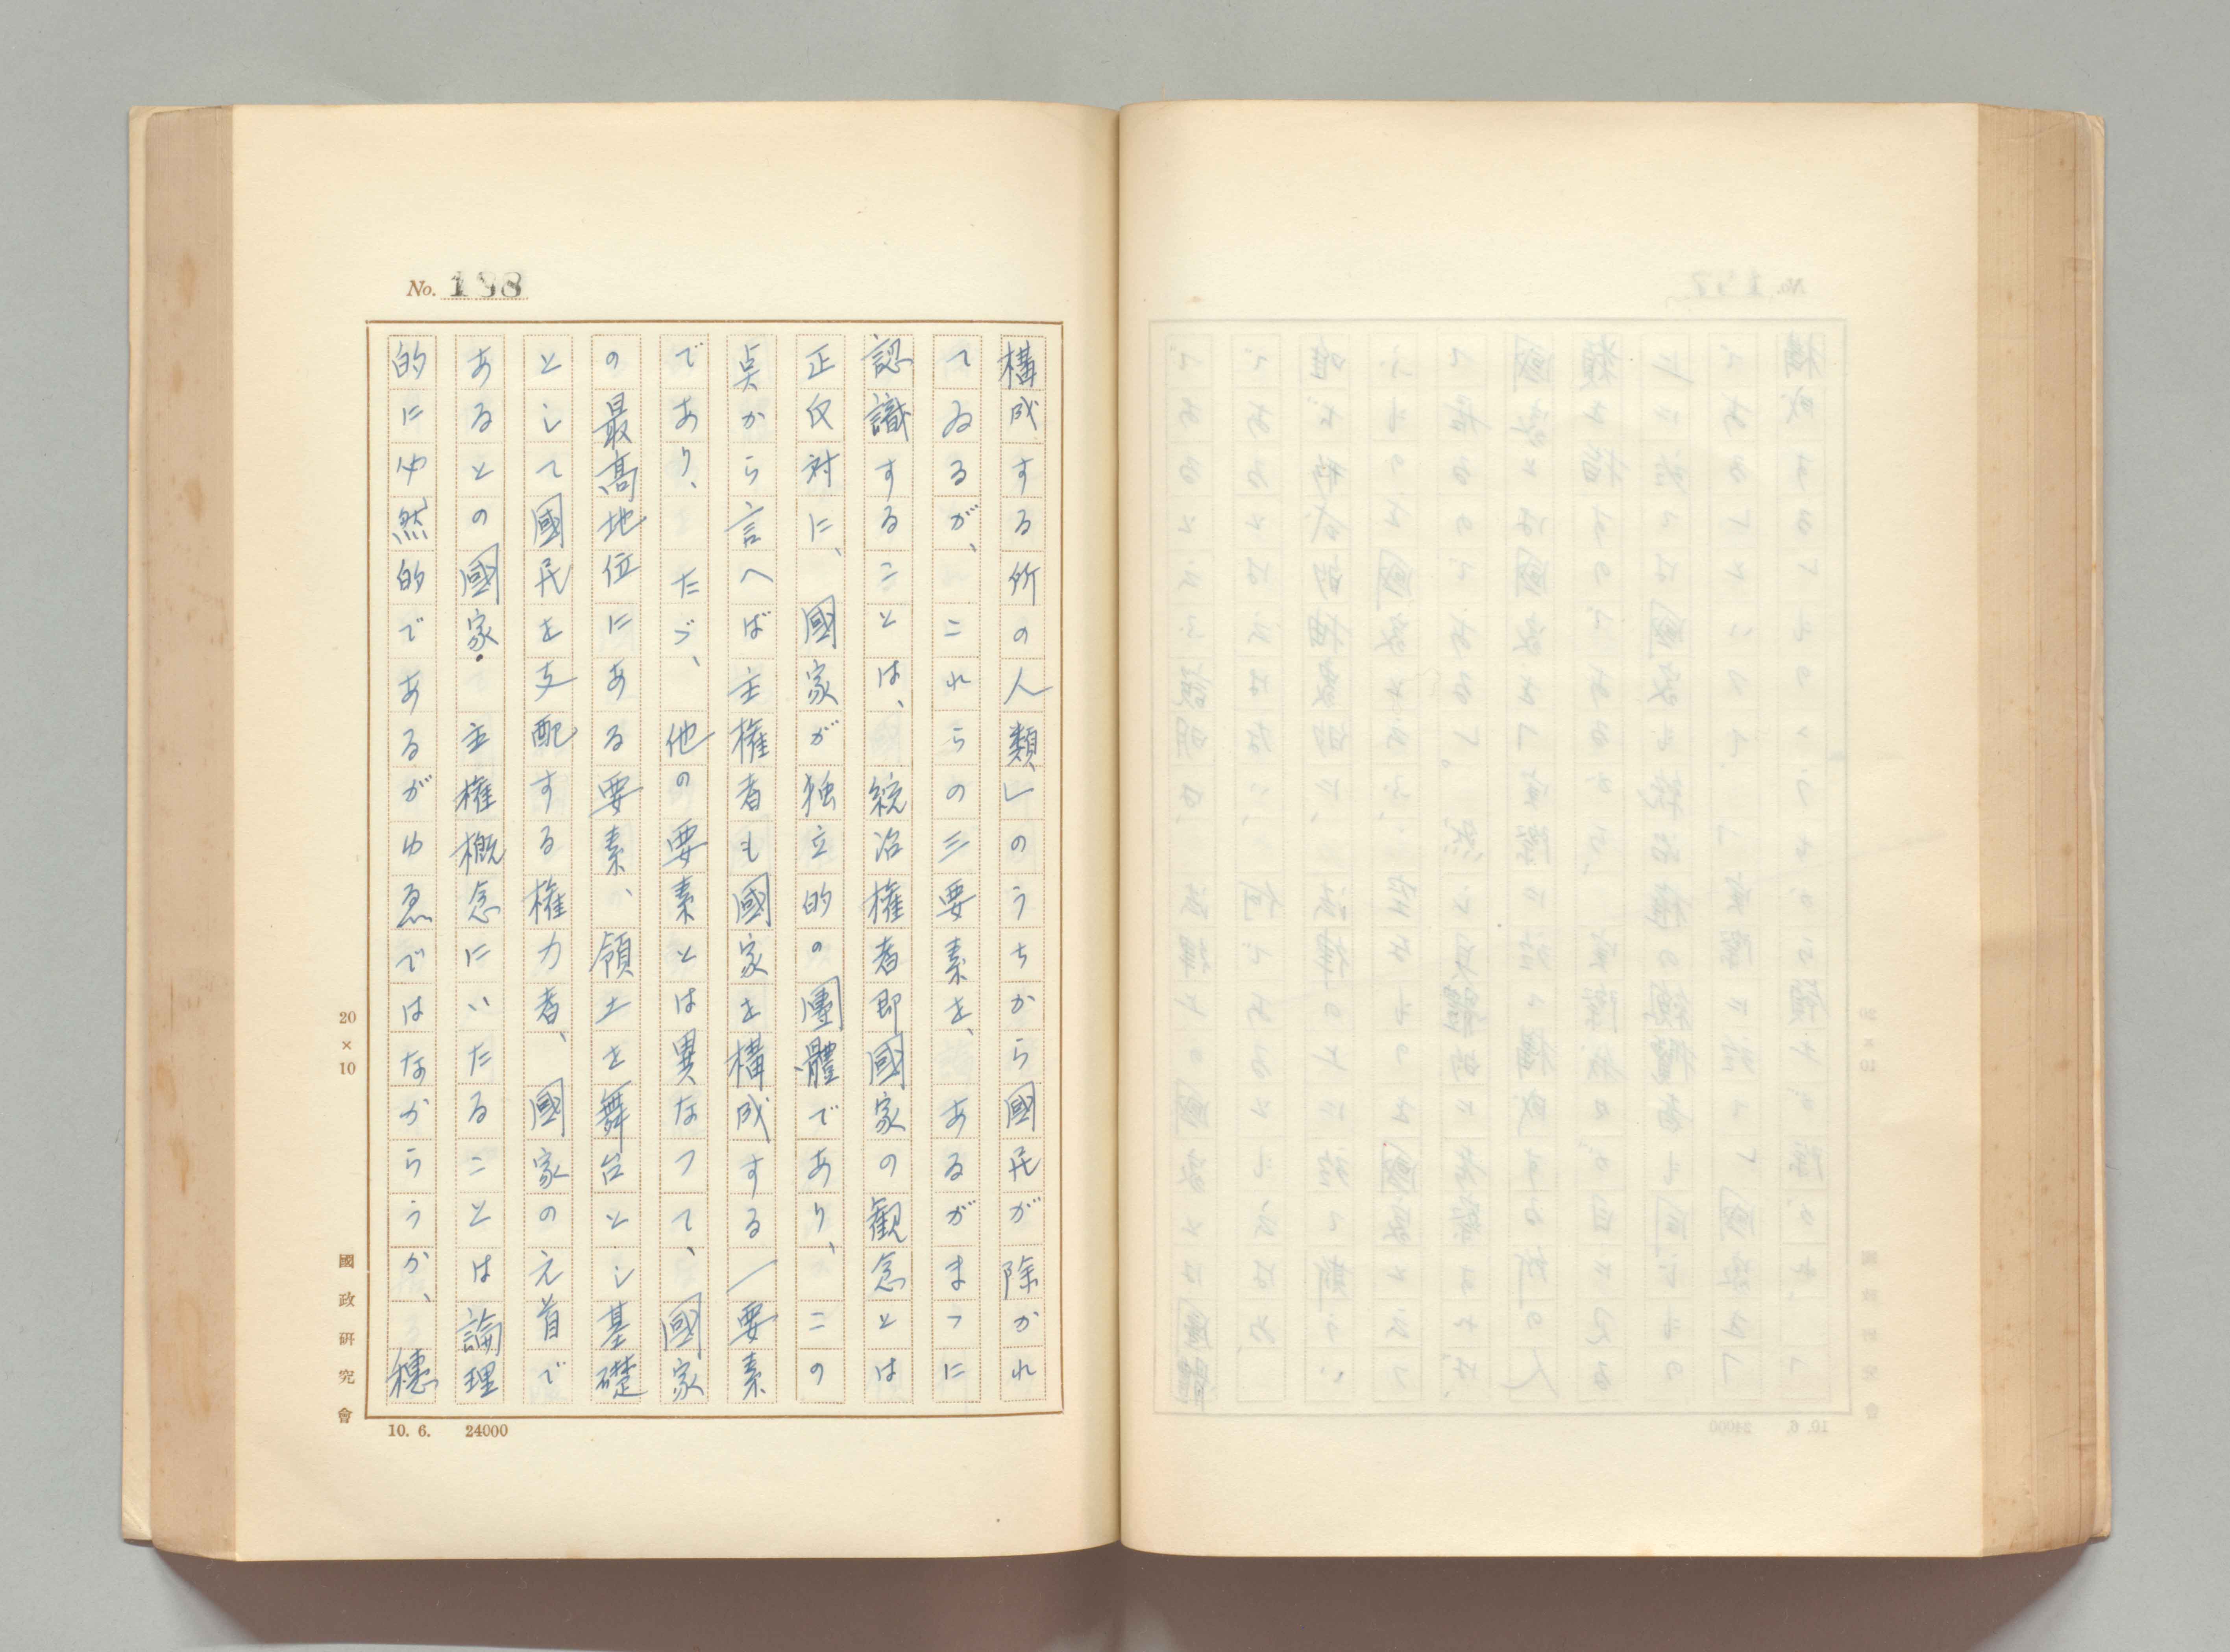 No. 198
構成する所の人類」のうちから國民が除かれ
てゐるが、これらの三要素を、あるがまつに
認識することは、統治權者即國家の観念とは
正反対に、國家が独立的の團體であり、この
点から言へば主権者も國家を構成する一要素
であり、たゞ、他の要素とは異なつて、國家
の最高地位にある要素、領土を舞台とし基礎
として國民を支配する権力者、國家の元首で
あるとの國家・主権概念にいたることは論理
的に必然的であるがゆゑではなからうか、穗
20×10
國政研究會
10. 6. 24000